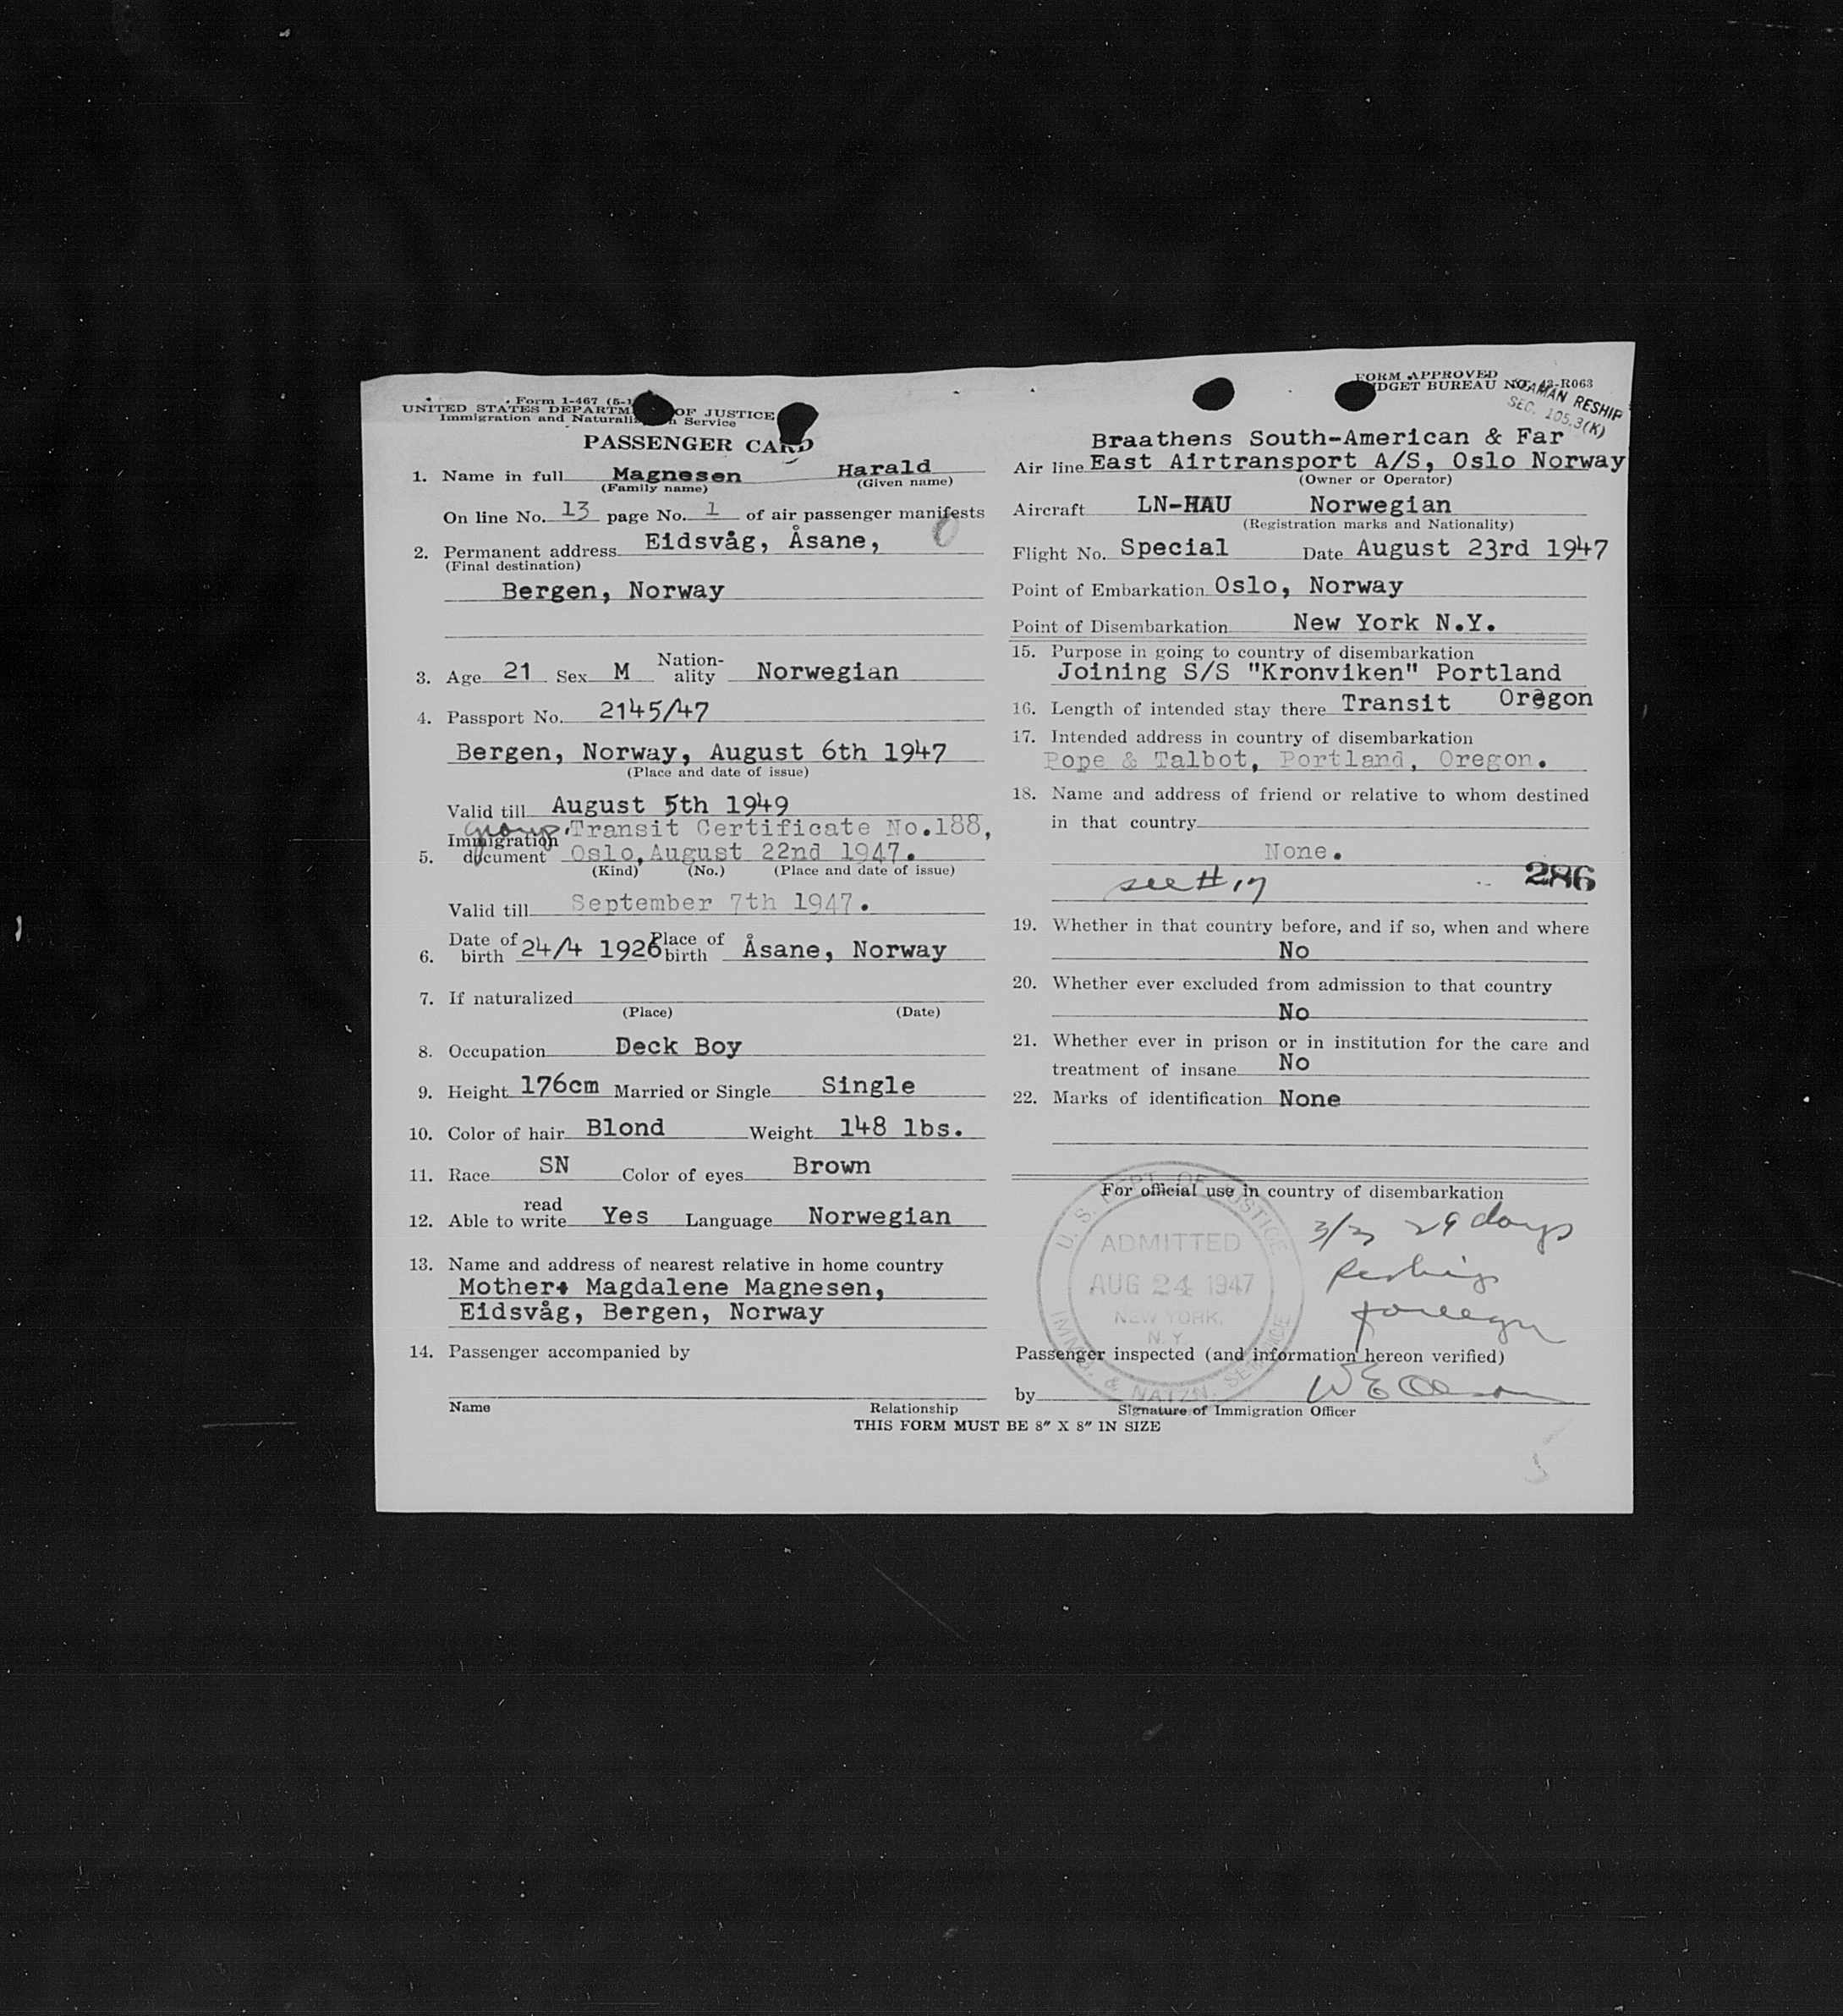 Form I-467 (5-1
UNITED STATES DEPARTM OF JUSTICE
Immigration and Naturaliz n Service
PASSENGER CARD
1. Name in full Magnesen Harald
(Family name) (Given name)
On line No. 13 page No. 1 of air passenger manifests
2. Permanent address Eidsvåg, Åsane,
(Final destination)
Bergen, Norway
3. Age 21 Sex M Nation-
ality Norwegian
4. Passport No. 2145/47
Bergen, Norway, August 6th 1947
(Place and date of issue)
Valid till August 5th 1949
group Transit Certificate No.188,
5. Immigration
document Oslo, August 22nd 1947.
(Kind) (No.) (Place and date of issue)
Valid till September 7th 1947.
6. Date of
birth 24/4 1926 Place of
birth Åsane, Norway
7. If naturalized
(Place) (Date)
8. Occupation Deck Boy
9. Height 176cm Married or Single Single
10. Color of hair Blond Weight 148 lbs.
11. Race SN Color of eyes Brown
12. Able to read
write Yes Language Norwegian
13. Name and address of nearest relative in home country
Mother: Magdalene Magnesen,
Eidsvåg, Bergen, Norway
14. Passenger accompanied by
Name Relationship
FORM APPROVED
DGET BUREAU NO. 43-R063
SEAMAN RESHIP
SEC. 105.3(K)
Braathens South-American & Far
Air line East Airtransport A/S, Oslo Norway
(Owner or Operator)
Aircraft LN-HAU Norwegian
(Registration marks and Nationality)
Flight No. Special Date August 23rd 1947
Point of Embarkation Oslo, Norway
Point of Disembarkation New York N.Y.
15. Purpose in going to country of disembarkation
Joining S/S "Kronviken" Portland
16. Length of intended stay there Transit Oregon
17. Intended address in country of disembarkation
Pope & Talbot, Portland, Oregon.
18. Name and address of friend or relative to whom destined
in that country
None.
see # 17 286
19. Whether in that country before, and if so, when and where
No
20. Whether ever excluded from admission to that country
No
21. Whether ever in prison or in institution for the care and
treatment of insane No
22. Marks of identification None
For official use in country of disembarkation
U. S. DEPT. OF JUSTICE
ADMITTED
AUG 24 1947
NEW YORK,
N.Y.
IMMG. & NATZN. SERVICE
3/2 29 days
Reship
foreign
Passenger inspected (and information hereon verified)
by W E Olson
Signature of Immigration Officer
THIS FORM MUST BE 8" X 8" IN SIZE